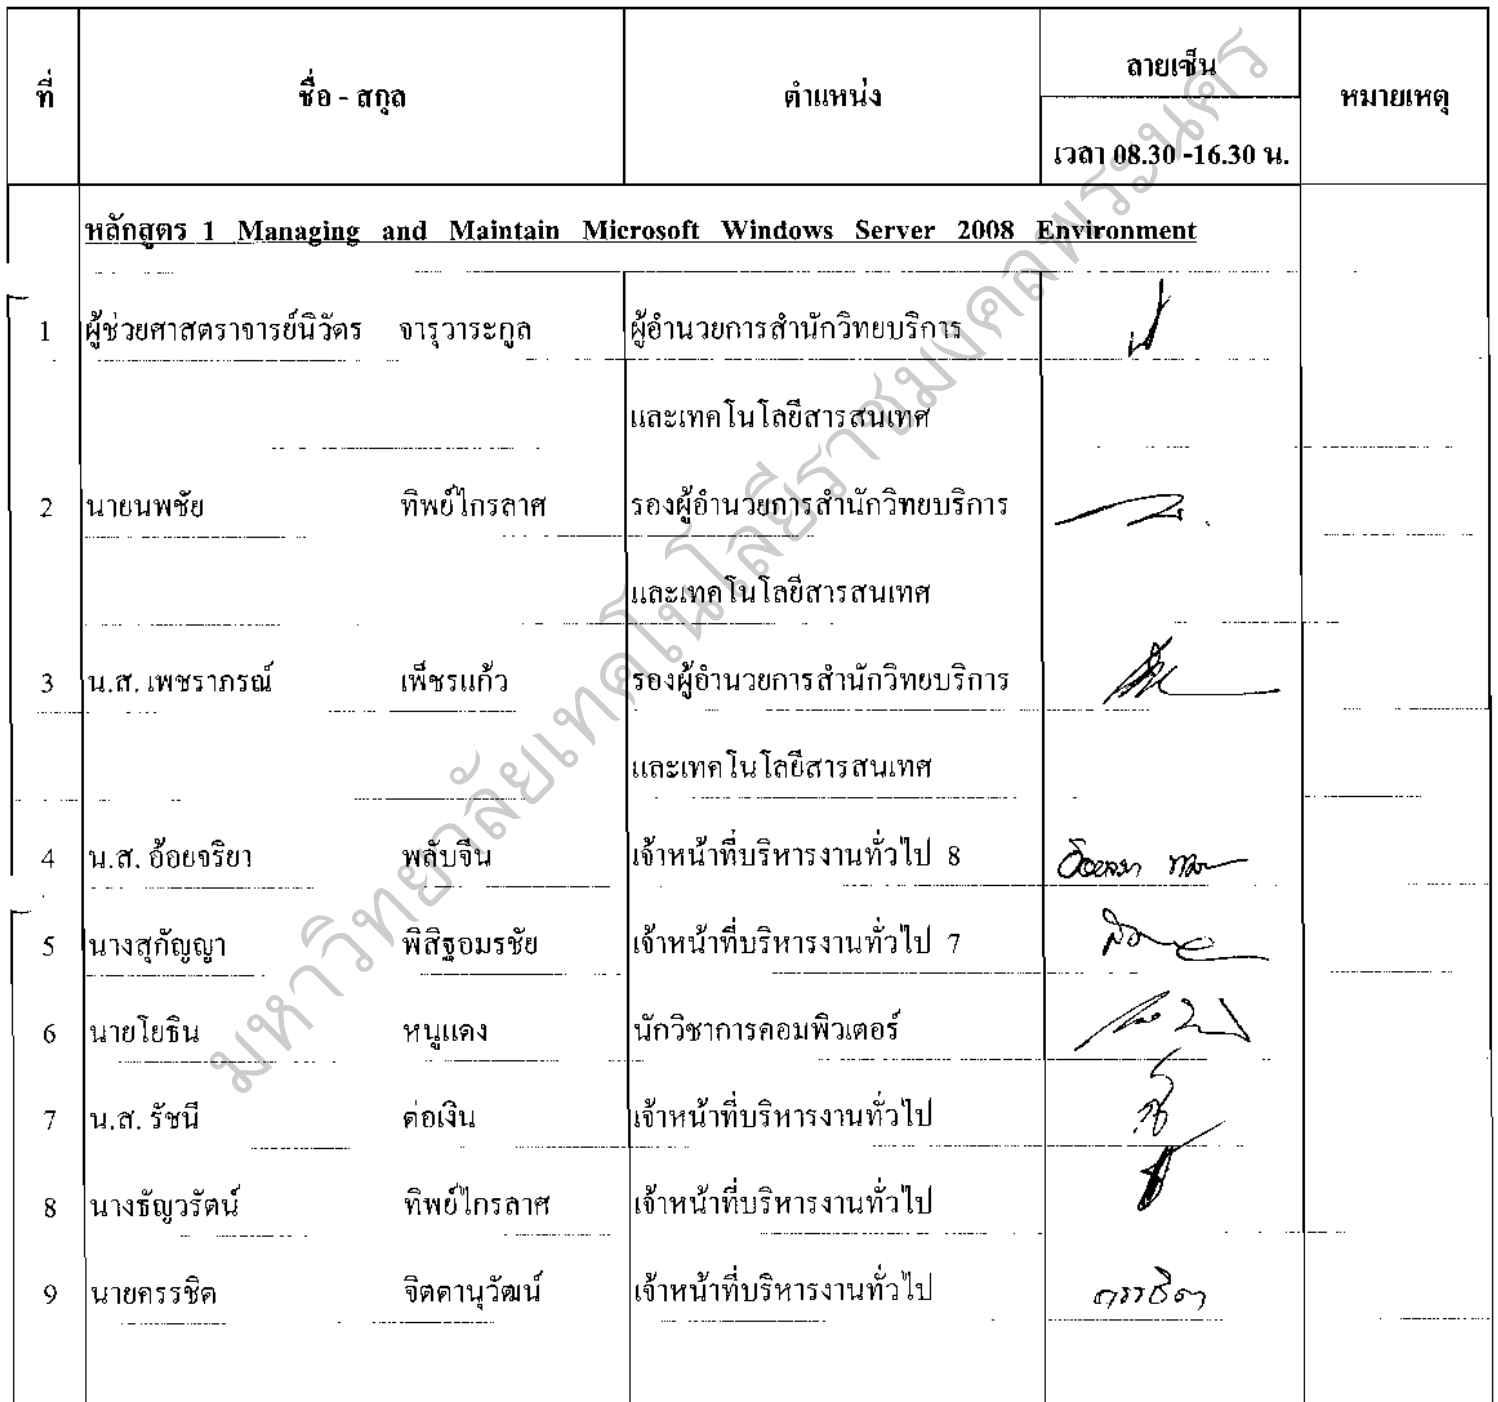 ที่ ชื่อ - สกุล ตำแหน่ง ลายเซ็น หมายเหตุ
เวลา 08.30 -16.30 น.
หลักสูตร 1 Managing and Maintain Microsoft Windows Server 2008 Environment
1 ผู้ช่วยศาสตราจารย์นิวัตร จารุวาระกูล ผู้อำนวยการสำนักวิทยบริการ
และเทคโนโลยีสารสนเทศ
2 นายนพชัย ทิพย์ไกรลาศ รองผู้อำนวยการสำนักวิทยบริการ
และเทคโนโลยีสารสนเทศ
3 น.ส. เพชราภรณ์ เพ็ชรแก้ว รองผู้อำนวยการสำนักวิทยบริการ
และเทคโนโลยีสารสนเทศ
4 น.ส. อ้อยจริยา พลับจีน เจ้าหน้าที่บริหารงานทั่วไป 8
5 นางสุกัญญา พิสิฐอมรชัย เจ้าหน้าที่บริหารงานทั่วไป 7
6 นายโยธิน หนูแดง นักวิชาการคอมพิวเตอร์
7 น.ส. รัชนี ต่อเงิน เจ้าหน้าที่บริหารงานทั่วไป
8 นางธัญวรัตน์ ทิพย์ไกรลาศ เจ้าหน้าที่บริหารงานทั่วไป
9 นายครรชิต จิตตานุวัฒน์ เจ้าหน้าที่บริหารงานทั่วไป ครรชิต
มหาวิทยาลัยเทคโนโลยีราชมงคลพระนคร